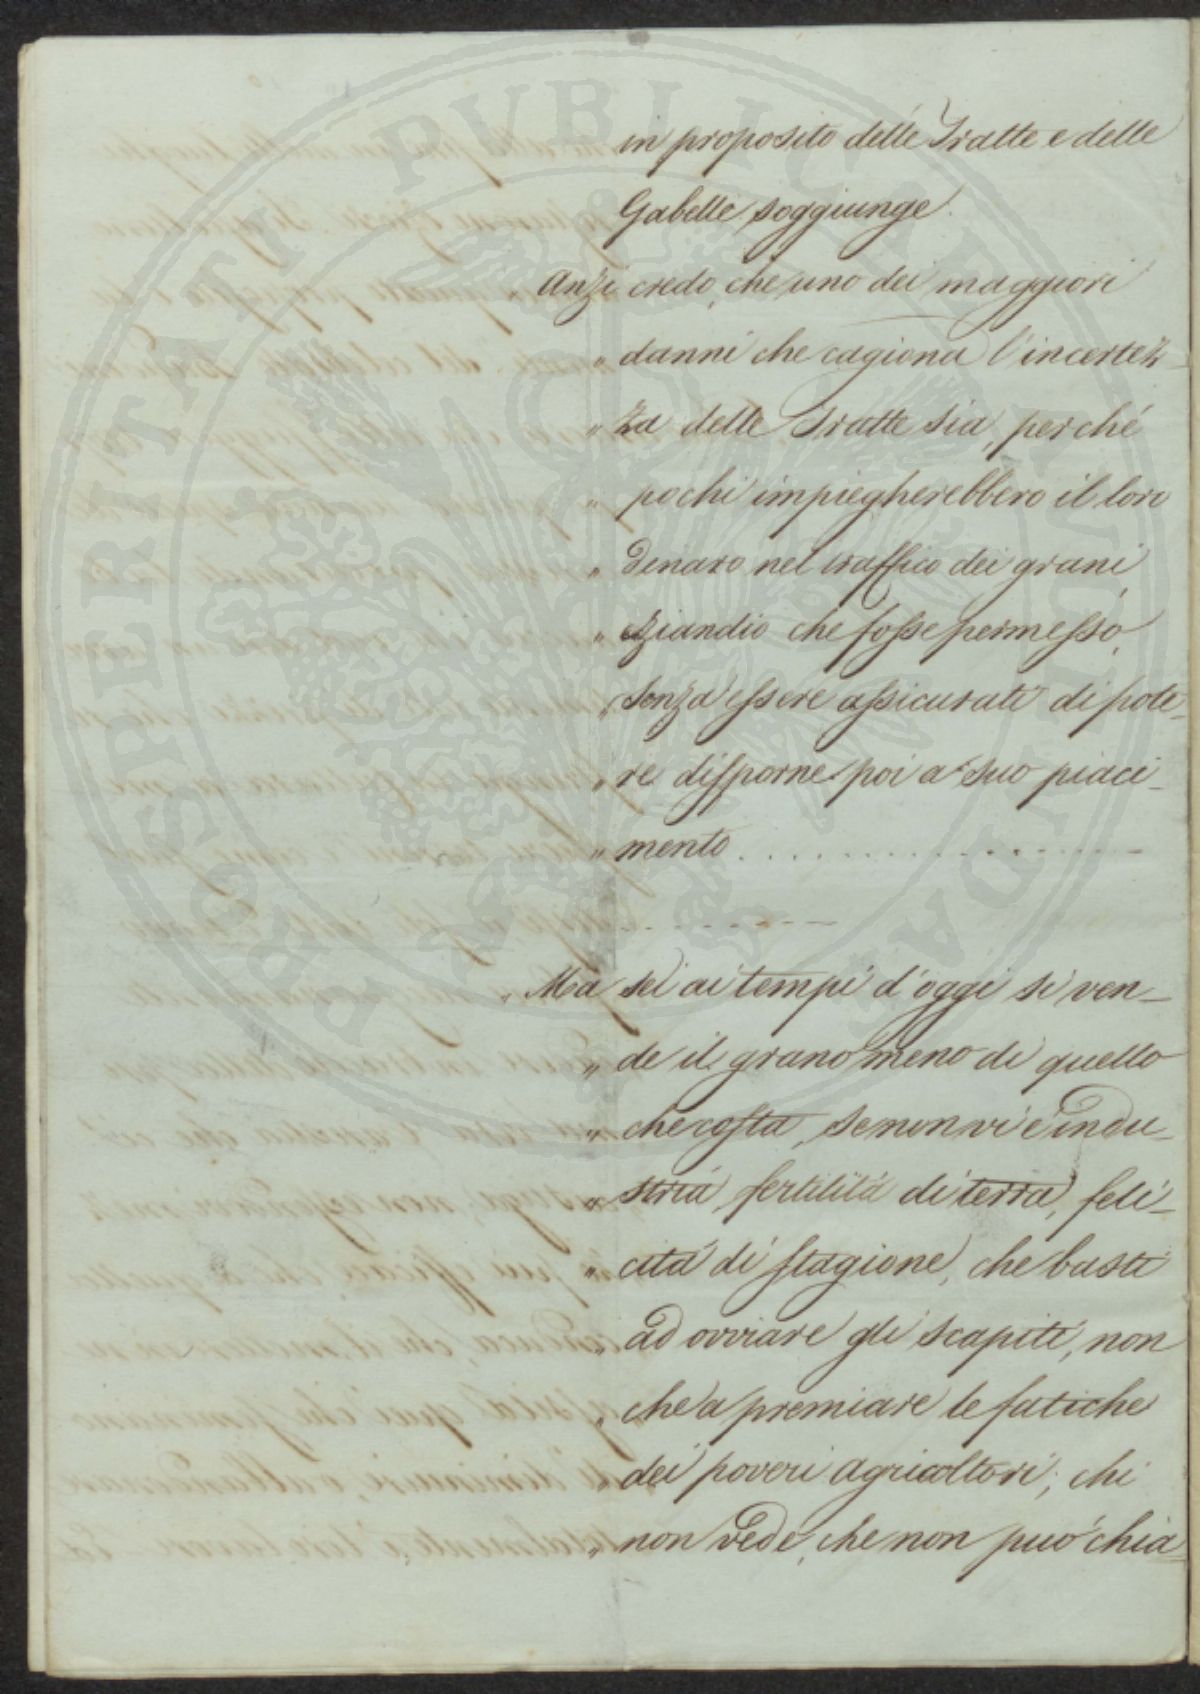 in proposito delle Tratte e delle
Gabelle soggiunge.
Anzi credo, che uno dei maggiori
„ danni che cagiona l'incertez-
„ za delle Tratte sia, perché
„ pochi impiegherebbero il loro
„ denaro nel traffico dei grani,
„ eziandio che fosse permesso,
„ senza essere assicurati di pote-
„ re disporne poi a suo piaci-
„ mento . . . . . . . . . . . . . . . . . .
. . . . . . . . . .
„ Ma se ai tempi d'oggi si ven-
„ de il grano meno di quello
„ che costa, se non vi è indu-
„ stria, fertilità di terra, feli-
„ cità di stagione, che basti
„ ad ovviare gli scapiti, non
„ che a premiare le fatiche
„ dei poveri agricoltori; chi
„ non vede, che non può chia-
PROSPERITATI PUBLICAE AUGENDAE